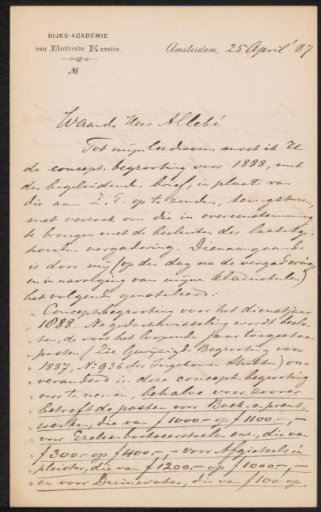 RIJKS-ACADEMIE
van Beeldende Kunsten.
No
Amsterdam, 25 April '87
Waarde Heer Allebé
Tot mijn leedwezen moet ik U
de concept-begrooting voor 1888, met
den begeleidenden brief, in plaats van
die aan Z. E. op te zenden, terugsturen,
met verzoek om die in overeenstemming
te brengen met de besluiten der laatstge-
houden vergadering. Dienaangaande
is door mij (op den dag na de vergadering
en in navolging van mijne kladnotulen)
het volgende genotuleerd:
"Conceptbegrooting voor het dienstjaar
"1888. Na gedachtenwisseling wordt beslo-
"ten, de voor het loopende jaar toegestane
"posten (Zie Gewijzigde Begrooting voor
"1887, No 936 der Ingekomen Stukken) on-
"veranderd in deze concept-begrooting
"over te nemen, behalve voor zoover
"betreft de posten voor Boek- en prent-
"werken, die van f 1000.- op f 1100,-,
"voor ent, die van
"f 300.- op f 400,-, voor Afgietsels in
"pleister, die van f 1200.- op f 1000,-,
"en voor Duinwater, die van f 100 op